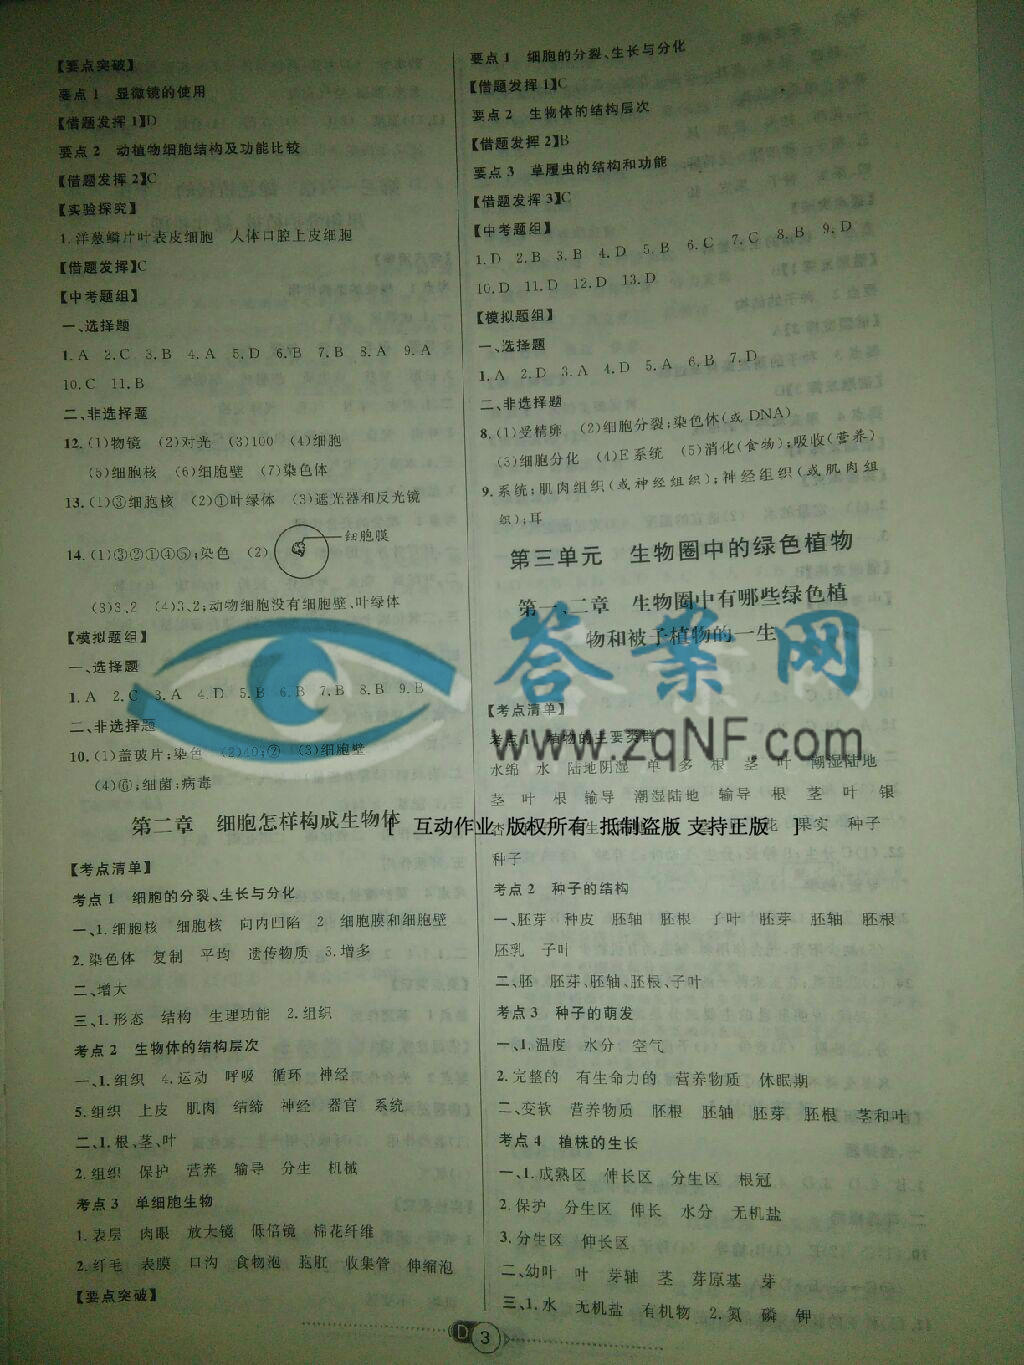 【要点突破】
要点1 显微镜的使用
【借题发挥1】D
要点2 动植物细胞结构及功能比较
【借题发挥2】C
【实验探究】
1.洋葱鳞片叶表皮细胞 人体口腔上皮细胞
【借题发挥】C
【中考题组】
一、选择题
1.A 2.C 3.B 4.A 5.D 6.B 7.B 8.A 9.A
10.C 11.B
二、非选择题
12.(1)物镜 (2)对光 (3)100 (4)细胞
(5)细胞核 (6)细胞壁 (7)染色体
13.(1)③细胞核 (2)①叶绿体 (3)遮光器和反光镜
14.(1)③②①④⑤;染色 (2)
细胞膜
(3)3、2 (4)3、2;动物细胞没有细胞壁、叶绿体
【模拟题组】
一、选择题
1.A 2.C 3.A 4.D 5.B 6.B 7.B 8.B 9.B
二、非选择题
10.(1)盖玻片;染色 (2)40;② (3)细胞壁
(4)⑥;细菌;病毒
第二章 细胞怎样构成生物体
【考点清单】
考点1 细胞的分裂、生长与分化
一、1.细胞核 细胞核 向内凹陷 2 细胞膜和细胞壁
2.染色体 复制 平均 遗传物质 3.增多
二、增大
三、1.形态 结构 生理功能 2.组织
考点2 生物体的结构层次
一、1.组织 4.运动 呼吸 循环 神经
5.组织 上皮 肌肉 结缔 神经 器官 系统
二、1.根、茎、叶
2.组织 保护 营养 输导 分生 机械
考点3 单细胞生物
1.表层 肉眼 放大镜 低倍镜 棉花纤维
2.纤毛 表膜 口沟 食物泡 胞肛 收集管 伸缩泡
【要点突破】
要点1 细胞的分裂、生长与分化
【借题发挥1】C
要点2 生物体的结构层次
【借题发挥2】B
要点3 草履虫的结构和功能
【借题发挥3】C
【中考题组】
1.D 2.B 3.B 4.D 5.B 6.C 7.C 8.B 9.D
10.D 11.D 12.D 13.D
【模拟题组】
一、选择题
1.A 2.D 3.A 4.D 5.A 6.B 7.D
二、非选择题
8.(1)受精卵 (2)细胞分裂;染色体(或DNA)
(3)细胞分化 (4)E系统 (5)消化(食物);吸收(营养)
9.系统;肌肉组织(或神经组织);神经组织(或肌肉组
织);耳
第三单元 生物圈中的绿色植物
第一、二章 生物圈中有哪些绿色植
物和被子植物的一生
【考点清单】
考点1 植物的主要类群
水绵 水 陆地阴湿 单 多 根 茎 叶 潮湿陆地
茎 叶 根 输导 潮湿陆地 输导 根 茎 叶 银
杏 花 果实 种子
种子
考点2 种子的结构
一、胚芽 种皮 胚轴 胚根 子叶 胚芽 胚轴 胚根
胚乳 子叶
二、胚 胚芽、胚轴、胚根、子叶
考点3 种子的萌发
一、1.温度 水分 空气
2.完整的 有生命力的 营养物质 休眠期
二、变软 营养物质 胚根 胚轴 胚芽 胚根 茎和叶
考点4 植株的生长
一、1.成熟区 伸长区 分生区 根冠
2.保护 分生区 伸长 水分 无机盐
3.分生区 伸长区
二、幼叶 叶 芽轴 茎 芽原基 芽
三、1.水 无机盐 有机物 2.氮 磷 钾
D 3
答案网
www.zqNF.com
[ 互动作业 版权所有 抵制盗版 支持正版 ]